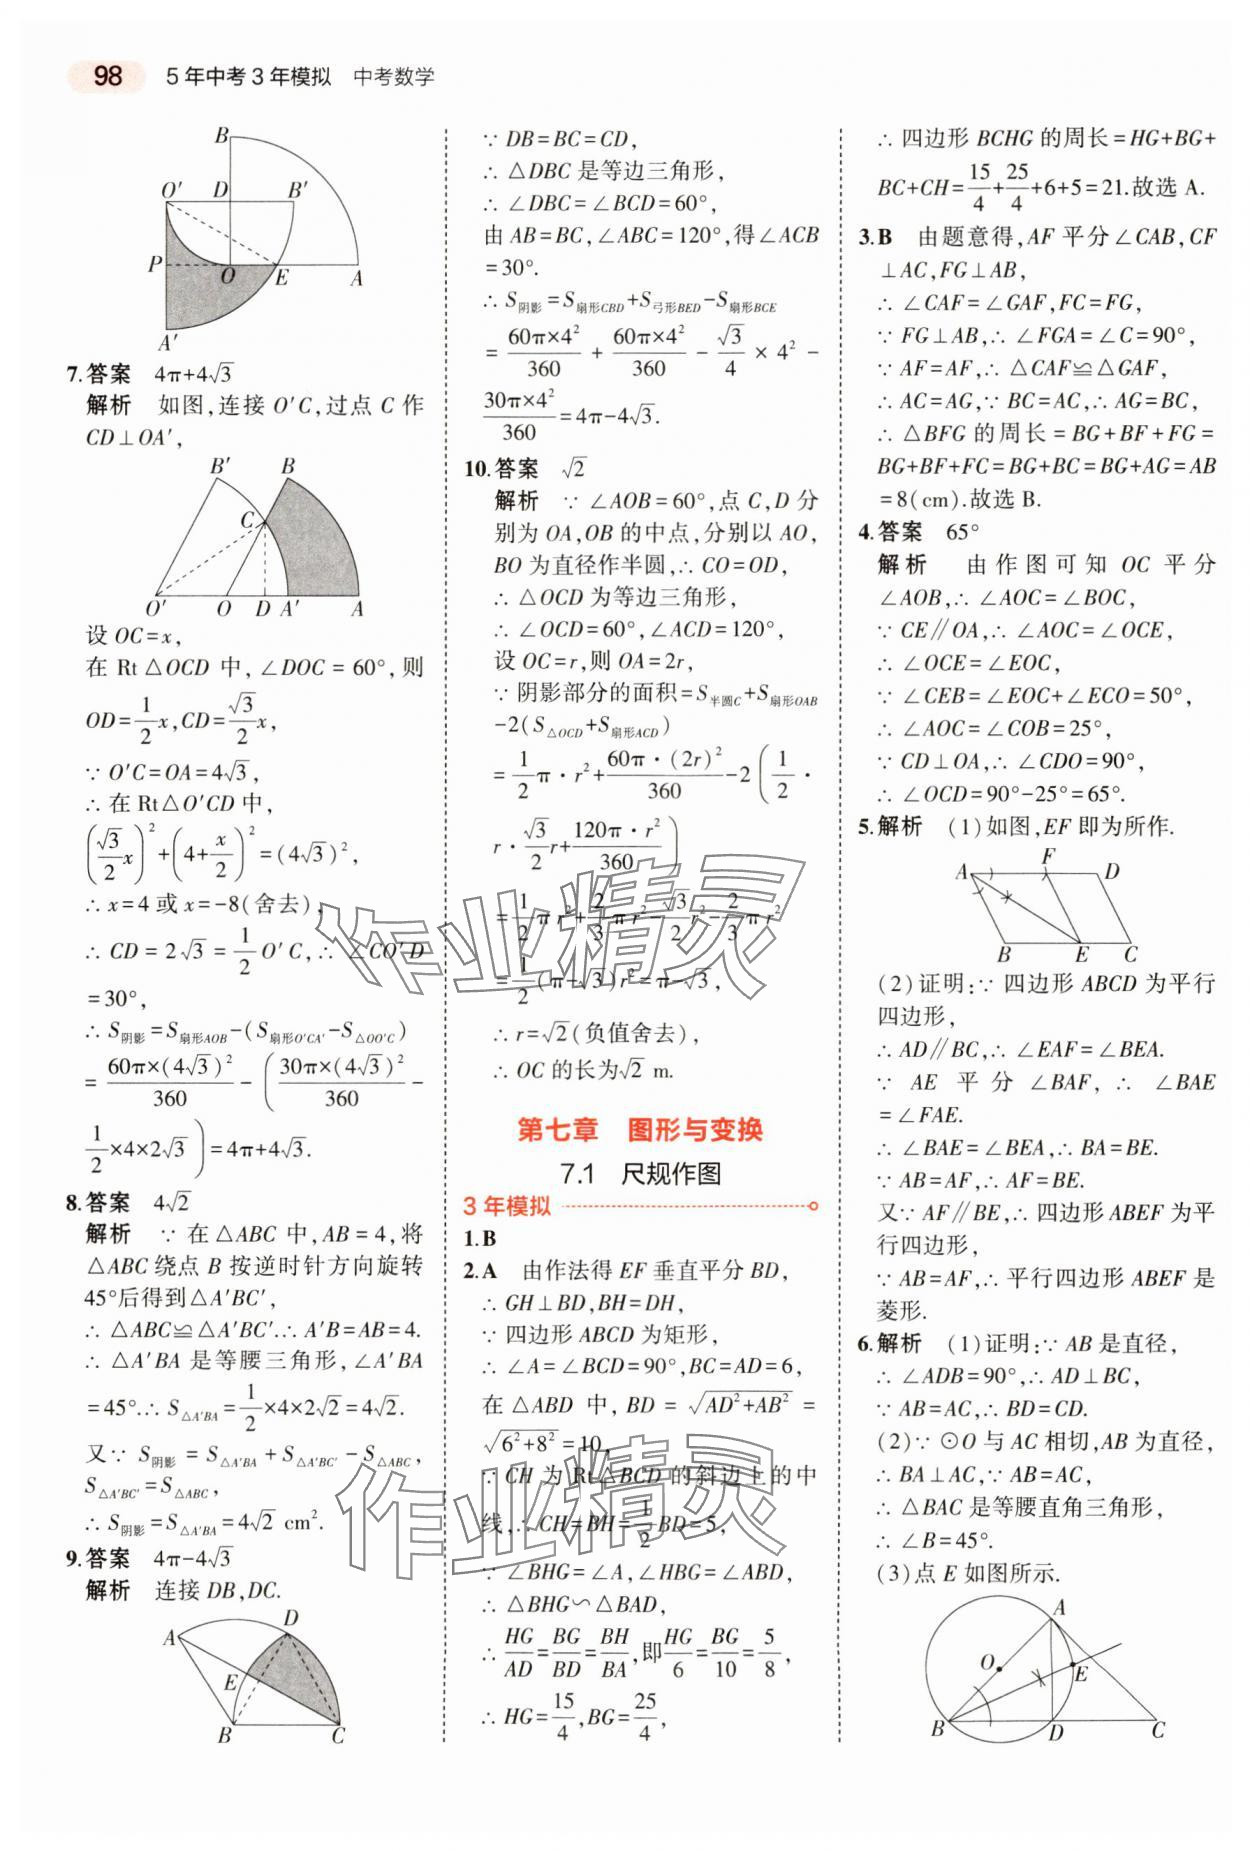 98 5年中考3年模拟 中考数学
B
O′ D B′
P O E A
A′
7.答案 4π+4√3
解析 如图,连接 O′C,过点 C 作
CD⊥OA′,
B′ B
C
O′ O D A′ A
设 OC=x,
在 Rt△OCD 中,∠DOC=60°,则
OD=1/2x,CD=√3/2x,
∵O′C=OA=4√3,
∴在 Rt△O′CD 中,
(√3/2x)²+(4+x/2)²=(4√3)²,
∴x=4或 x=-8(舍去),
∴CD=2√3=1/2O′C,∴∠CO′D
=30°,
∴S阴影=S扇形AOB-(S扇形O′CA′-S△OO′C)
=60π×(4√3)²/360-(30π×(4√3)²/360-
1/2×4×2√3)=4π+4√3.
8.答案 4√2
解析 ∵在△ABC 中,AB=4,将
△ABC 绕点 B 按逆时针方向旋转
45°后得到△A′BC′,
∴△ABC≌△A′BC′.∴A′B=AB=4.
∴△A′BA 是等腰三角形,∠A′BA
=45°.∴S△A′BA=1/2×4×2√2=4√2.
又∵S阴影=S△A′BA+S△A′BC′-S△ABC,
S△A′BC′=S△ABC,
∴S阴影=S△A′BA=4√2 cm².
9.答案 4π-4√3
解析 连接 DB,DC.
D
A
E
B C
∵DB=BC=CD,
∴△DBC 是等边三角形,
∴∠DBC=∠BCD=60°,
由 AB=BC,∠ABC=120°,得∠ACB
=30°.
∴S阴影=S扇形CBD+S弓形BED-S扇形BCE
=60π×4²/360+60π×4²/360-√3/4×4²-
30π×4²/360=4π-4√3.
10.答案 √2
解析 ∵∠AOB=60°,点 C,D 分
别为 OA,OB 的中点,分别以 AO,
BO 为直径作半圆,∴CO=OD,
∴△OCD 为等边三角形,
∴∠OCD=60°,∠ACD=120°,
设 OC=r,则 OA=2r,
∵阴影部分的面积=S半圆C+S扇形OAB
-2(S△OCD+S扇形ACD)
=1/2π·r²+60π·(2r)²/360-2(1/2·
r·√3/2r+120π·r²/360)
=1/2πr²+2/3πr²-√3/2r²-2/3πr²
=1/2(π-√3)r²=π-√3,
∴r=√2(负值舍去),
∴OC 的长为√2 m.
第七章 图形与变换
7.1 尺规作图
3年模拟
1.B
2.A 由作法得 EF 垂直平分 BD,
∴GH⊥BD,BH=DH,
∵四边形 ABCD 为矩形,
∴∠A=∠BCD=90°,BC=AD=6,
在△ABD 中,BD=√(AD²+AB²)=
√(6²+8²)=10,
∵CH 为 Rt△BCD 的斜边上的中
线,∴CH=BH=1/2BD=5,
∵∠BHG=∠A,∠HBG=∠ABD,
∴△BHG∽△BAD,
∴HG/AD=BG/BD=BH/BA,即HG/6=BG/10=5/8,
∴HG=15/4,BG=25/4,
∴四边形 BCHG 的周长=HG+BG+
BC+CH=15/4+25/4+6+5=21.故选 A.
3.B 由题意得,AF 平分∠CAB,CF
⊥AC,FG⊥AB,
∴∠CAF=∠GAF,FC=FG,
∵FG⊥AB,∴∠FGA=∠C=90°,
∵AF=AF,∴△CAF≌△GAF,
∴AC=AG,∵BC=AC,∴AG=BC,
∴△BFG 的周长=BG+BF+FG=
BG+BF+FC=BG+BC=BG+AG=AB
=8(cm).故选 B.
4.答案 65°
解析 由作图可知 OC 平分
∠AOB,∴∠AOC=∠BOC,
∵CE∥OA,∴∠AOC=∠OCE,
∴∠OCE=∠EOC,
∵∠CEB=∠EOC+∠ECO=50°,
∴∠AOC=∠COB=25°,
∵CD⊥OA,∴∠CDO=90°,
∴∠OCD=90°-25°=65°.
5.解析 (1)如图,EF 即为所作.
A F D
B E C
(2)证明:∵四边形 ABCD 为平行
四边形,
∴AD∥BC,∴∠EAF=∠BEA.
∵AE 平分∠BAF,∴∠BAE
=∠FAE.
∴∠BAE=∠BEA,∴BA=BE.
∵AB=AF,∴AF=BE.
又∵AF∥BE,∴四边形 ABEF 为平
行四边形,
∵AB=AF,∴平行四边形 ABEF 是
菱形.
6.解析 (1)证明:∵AB 是直径,
∴∠ADB=90°,∴AD⊥BC,
∵AB=AC,∴BD=CD.
(2)∵⊙O 与 AC 相切,AB 为直径,
∴BA⊥AC,∵AB=AC,
∴△BAC 是等腰直角三角形,
∴∠B=45°.
(3)点 E 如图所示.
A
O E
B D C
作业精灵
作业精灵